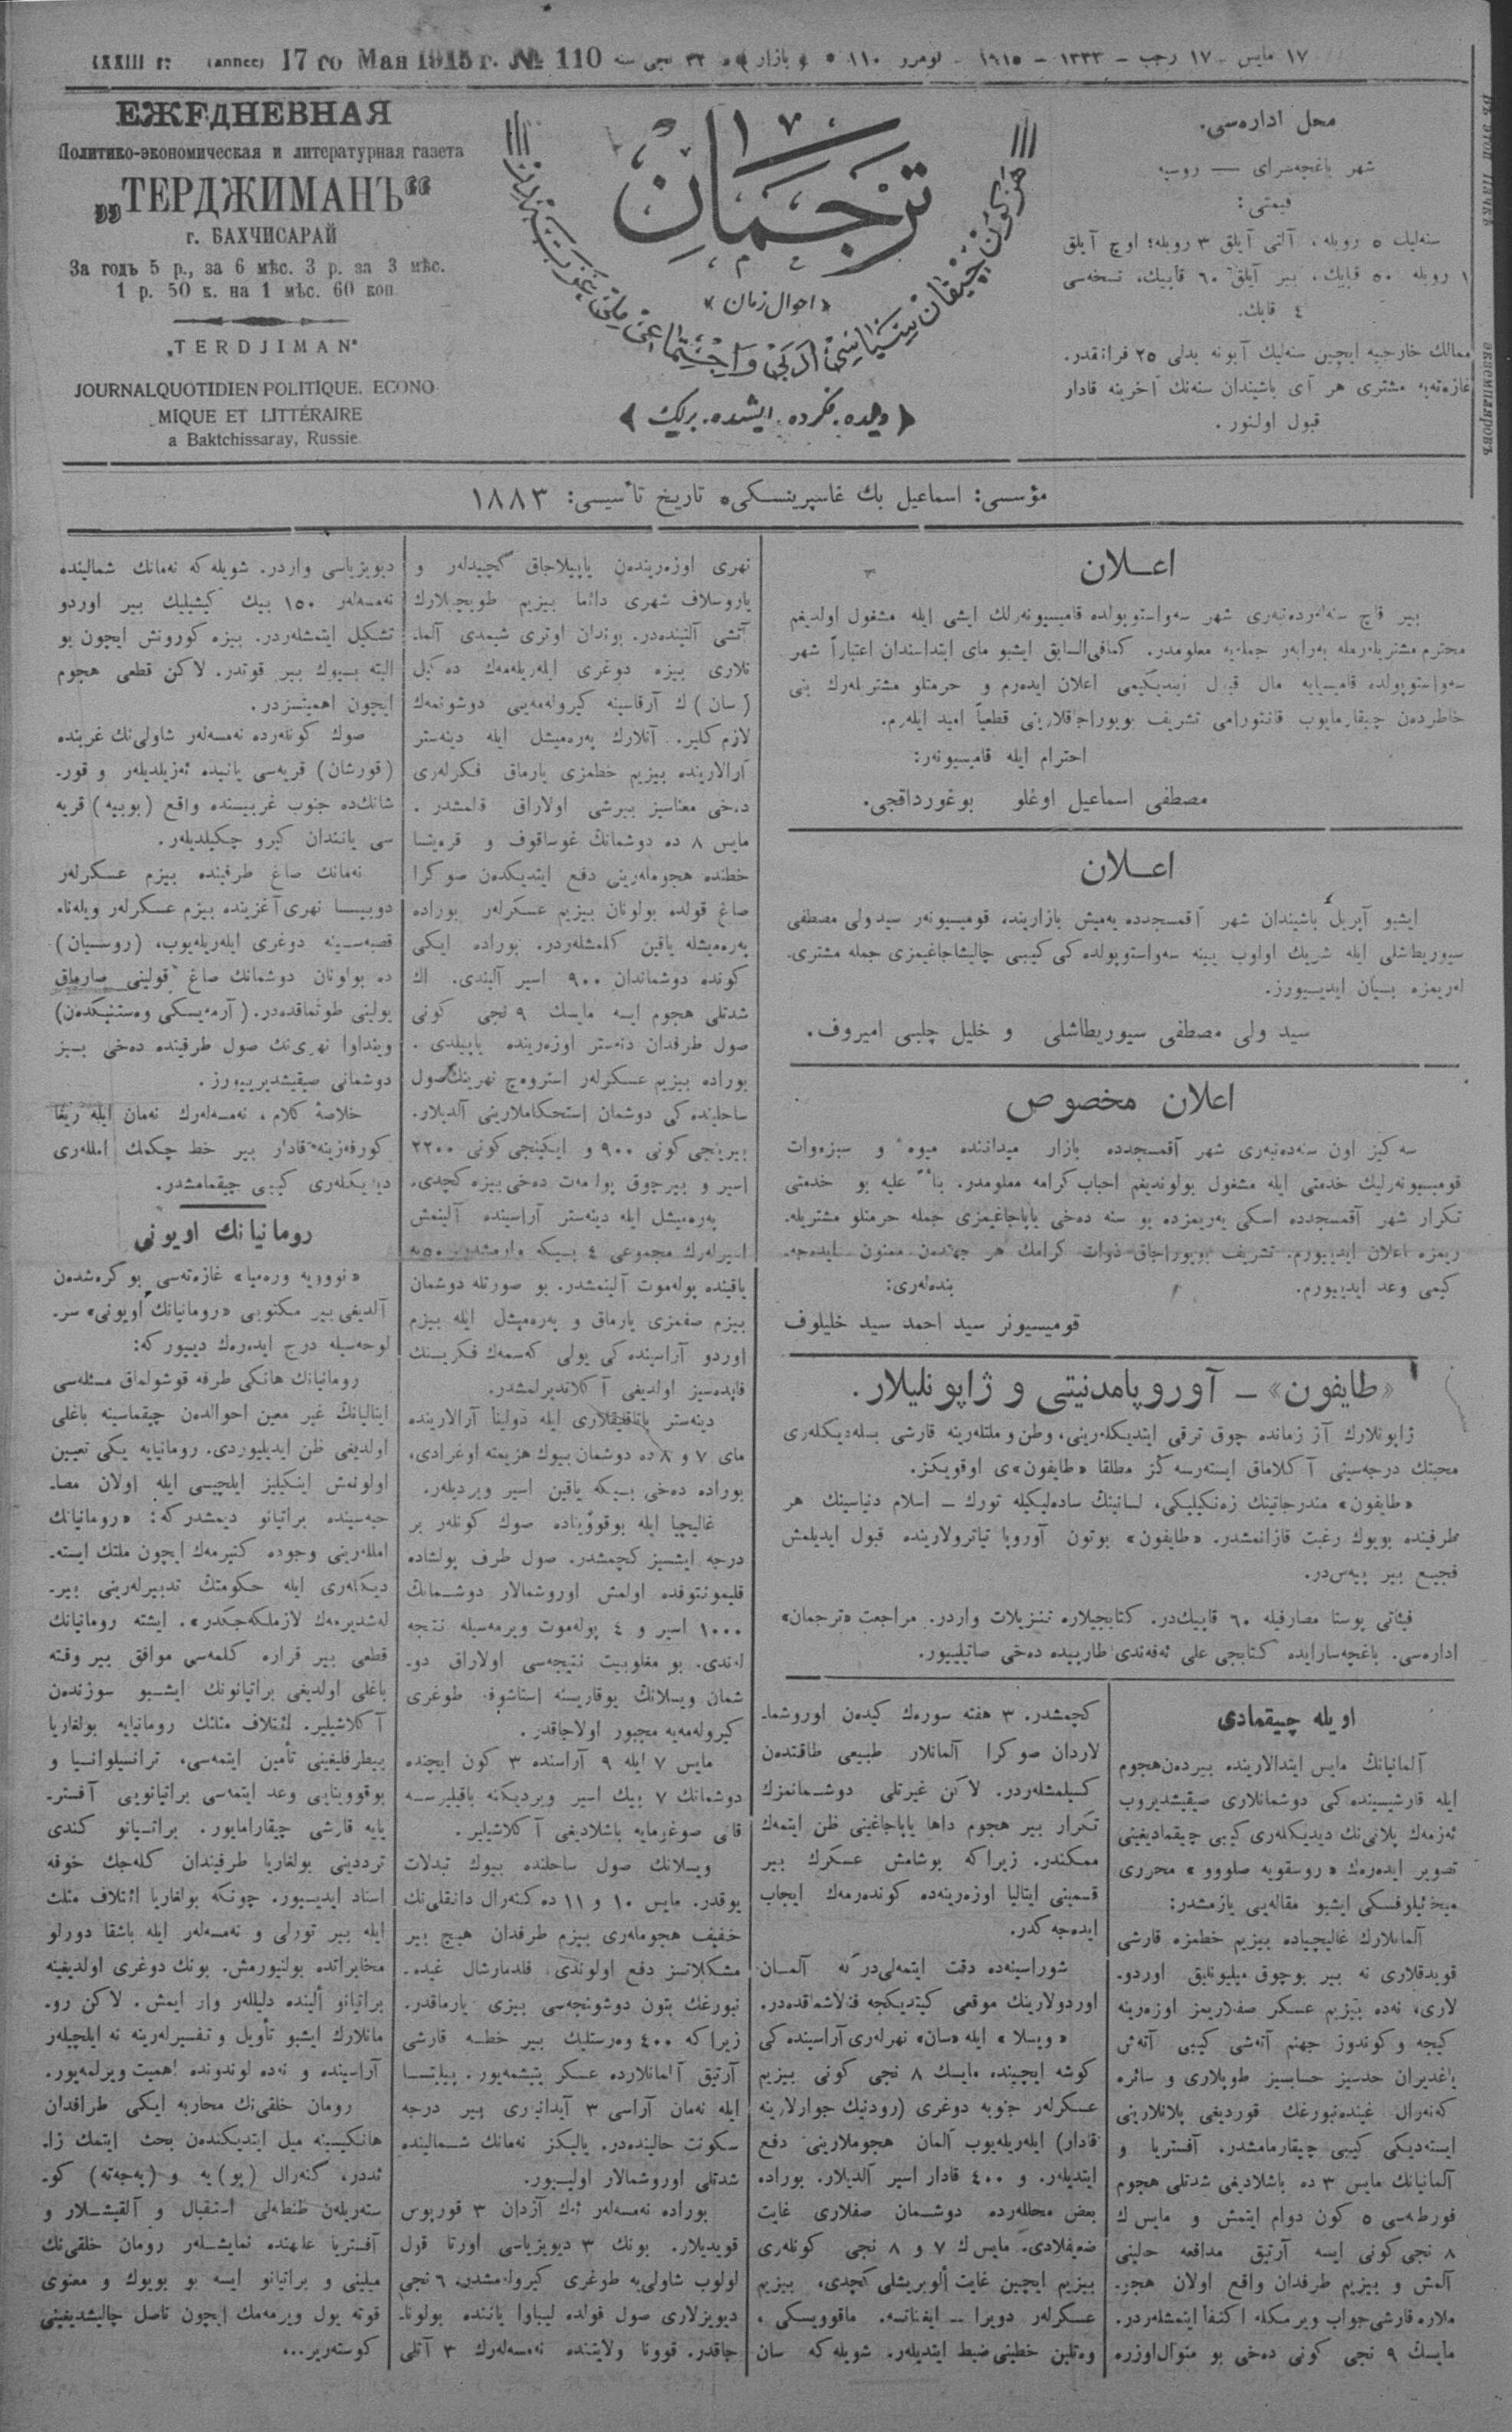 ١٧ مايس ١٧ رجب – ١٣٣٣ – ١٩١٥ – نومرو ١١٠ بازار ٣٢ نجی سنه 17 го Мая 1915 г. № 110 (année) г. LXXIII
ЕЖЕДНЕВНАЯ
Политико-экономическая и литературная газета
„ТЕРДЖИМАНЪ“
г. БАХЧИСАРАЙ
За годъ 5 р., за 6 мѣс. 3 р. за 3 мѣс.
1 р. 50 к. на 1 мѣс. 60 коп
„TERDJIMAN“
JOURNAL QUOTIDIEN POLITIQUE, ECONO-
MIQUE ET LITTÉRAIRE
a Baktchissaray, Russie.
ترجمان
«احوال زمان»
هر كون چیقان سیاسی ادبی و اجتماعی ملی غزته
﴿ دیلده. فكرده. ایشده. برلك ﴾
محل اداره‌سی.
شهر باغچه‌سرای — روسیه
قیمتی:
سنه‌لیك ٥ روبله، آلتی آیلق ٣ روبله؛ اوچ آیلق
١ روبله ٥٠ قاپیك، بیر آیلق ٦٠ قاپیك، نسخه‌سی
٤ قاپك.
ممالك خارجیه ایچین سنه‌لیك آبونه بدلی ٢٥ فرانقدر.
غازه‌ته‌یه مشتری هر آی باشیندان سنه‌نك آخرینه قادار
قبول اولنور.
مؤسسی: اسماعیل بك غاسپرینسكی تاریخ تأسیسی: ١٨٨٣
اعلان
بیر قاچ سنه‌لرده‌نبه‌ری شهر سه‌واستوپولده قامیسیونه‌رلك ایشی ایله مشغول اولدیغم
محترم مشتریلریمله به‌رابه‌ر جمله‌یه معلومدر. كمافی‌السابق ایشبو مای ابتداسندان اعتباراً شهر
سه‌واستوپولده قامیسیایه مال قبول ایتدیكیمی اعلان ایده‌رم و حرمتلو مشتریله‌رك بنی
خاطردن چیقارمایوب قانتورامی تشریف بویوراجاقلارینی قطعیاً امید ایله‌رم.
احترام ایله قامیسیونه‌ر:
مصطفی اسماعیل اوغلو بوغورداقجی.
اعلان
ایشبو آپریل باشیندان شهر آقمسجدده یه‌میش بازاریند، قومیسیونه‌ر سید ولی مصطفی
سیوریطاشلی ایله شریك اولوب یینه سه‌واستوپولده كی كیبی چالیشاجاغیمزی جمله مشتری-
له‌ریمزه بیان ایدیورز.
سید ولی مصطفی سیوریطاشلی و خلیل چلبی امیروف.
اعلان مخصوص
سه‌كیز اون سنه‌ده‌نبه‌ری شهر آقمسجدده بازار میداننده میوه و سبزه‌وات
قومیسیونه‌رلیك خدمتی ایله مشغول بولوندیغم احباب كرامه معلومدر. بناءً علیه بو خدمتی
تكرار شهر آقمسجدده اسكی یه‌ریمزده بو سنه ده‌خی یاپاجاغیمزی جمله حرمتلو مشتریله-
ریمزه اعلان ایدییورم. تشریف بویوراجاق ذوات كرامك هر جهتدن ممنون ایده‌جه-
كیمی وعد ایدییورم. بنده‌لری:
قومیسیونر سید احمد سید خلیلوف
«طایفون» – آوروپا مدنیتی و ژاپونلیلار.
ژاپونلارك آز زمانده چوق ترقی ایتدیكله‌رینی، وطن و ملتله‌رینه قارشی بسله‌دیكله‌ری
محبتك درجه‌سینی آكلاماق ایسته‌رسه‌ڭز مطلقا «طایفون»ی اوقویڭز.
«طایفون» مندرجاتینك زه‌نگینلیكی، لسانینڭ ساده‌لیكیله تورك – اسلام دنیاسینك هر
طرفینده بویوك رغبت قازانمشدر. «طایفون» بوتون آوروپا تیاترولارینده قبول ایدیلمش
فجیع بیر پیه‌س‌در.
فیئاتی پوستا مصارفیله ٦٠ قاپیك‌در. كتابجیلاره تنزیلات واردر. مراجعت «ترجمان»
اداره‌سی. باغچه‌سارایده كتابجی علی ئه‌فه‌ندی طارپیده ده‌خی صاتیلییور.
اویله چیقمادی
آلمانیانڭ مایس ابتدالارینده بیردن هجوم
ایله قارشیسینده كی دوشمانلاری صیقیشدیروب
ئه‌زمه‌ك پلانی‌نك دیدیكله‌ری كیبی چیقمادیغینی
تصویر ایده‌ره‌ك «روسقویه صلووو» محرری
میخئیلوفسكی ایشبو مقاله‌یی یازمشدر:
آلمانلارك غالیچیاده بیزیم خطمزه قارشی
قویدقلاری نه بیر بوچوق میلیونلیق اوردو-
لاری، نه‌ده بیزیم عسكر صفلاریمز اوزه‌رینه
كیجه و كوندوز جهنم آتشی كیبی آته‌ش
یاغدیران حدسیز حسابسیز طوپلاری و سائره
كه‌نه‌رال غیندنبورغك قوردیغی پلانلارینی
ایسته‌دیكی كیبی چیقارمامشدر. آفستریا و
آلمانیانك مایس ٣ ده باشلادیغی شدتلی هجوم
فورطه‌سی ٥ كون دوام ایتمش و مایس ك
٨ نجی كونی ایسه آرتیق مدافعه حالینی
آلمش و بیزیم طرفدان واقع اولان هجو-
ملاره قارشی جواب ویرمكله اكتفا ایتمشله‌ردر.
مایسك ٩ نجی كونی ده‌خی بو منوال اوزره
كچمشدر. ٣ هفته سوره‌ك كیده‌ن اوروشما-
لاردان صوكرا آلمانلار طبیعی طاقتدن
كسیلمشله‌ردر. لاكن غیرتلی دوشمانمزك
تكرار بیر هجوم داها یاپاجاغینی ظن ایتمه‌ك
ممكندر. زیراكه بوشامش عسكرك بیر
قسمینی ایتالیا اوزه‌رینه‌ده كونده‌رمه‌ك ایجاب
ایده‌جه‌كدر.
شوراسینه‌ده دقت ایتمه‌لی‌در كه آلمان
اوردولارینك موقعی كیتدیكجه فنالاشماقده‌در.
«ویسلا» ایله «سان» نهرله‌ری آراسینده كی
كوشه ایچینده مایسك ٨ نجی كونی بیزیم
عسكرله‌ر جنوبه دوغری (رودنیك جوارلارینه
قادار) ایله‌ریله‌یوب آلمان هجوملارینی دفع
ایتدیله‌ر. و ٤٠٠ قادار اسیر آلدیلار. بوراده
بعض محلله‌رده دوشمان صفلاری غایت
ضعیفلادی. مایس ك ٧ و ٨ نجی كونله‌ری
بیزیم ایچین غایت ألویریشلی كچدی، بیزیم
عسكرله‌ر دوبرا –
وه‌تلین خطینی ضبط ایتدیله‌ر. شویله‌كه سان
نهری اوزه‌رینده‌ن یاپیلاجاق كچیدله‌ر و
یاروسلاف شهری دائما بیزیم طوپجیلارك
آتشی آلتینده‌در. بوندان اوتری شیمدی آلما-
نلاری بیزه دوغری ایله‌ریله‌مه‌ك ده‌گیل
(سان) ك آرقاسینه كیروله‌مه‌یی دوشونمه‌ك
لازم كلیر. آنلارك په‌ره‌میشل ایله دینه‌ستر
آرالارینده بیزیم خطمزی یارماق فكرله‌ری
ده‌خی معناسیز بیرشی اولاراق قالمشدر.
مایس ٨ ده دوشمانڭ غوساقوف و قره‌ینسا
خطنده هجومله‌رینی دفع ایتدیكدن صوكرا
صاغ قولده بولونان بیزیم عسكرله‌ر بوراده
په‌ره‌میشله یاقین كلمشله‌ردر. بوراده ایكی
كونده دوشماندان ٩٠٠ اسیر آلیندی. اك
شدتلی هجوم ایسه مایسك ٩ نجی كونی
صول طرفدان دنه‌ستر اوزه‌رینده یاپیلدی.
بوراده بیزیم عسكرله‌ر استروه‌ج نهرینك صول
ساحلینده كی دوشمان استحكاملارینی آلدیلار.
بیرینجی كونی ٩٠٠ و ایكینجی كونی ٢٢٠٠
اسیر و بیرچوق پوله‌موت ده‌خی بیزه كچدی.
په‌ره‌میشل ایله دینه‌ستر آراسینده آلینمش
اسیرله‌رك مجموعی ٤ بیڭه وارمشدر. ٥٠ یه
یاقینده پوله‌موت آلینمشدر. بو صورتله دوشمان
بیزم صفمزی یارماق و په‌ره‌میشل ایله بیزم
اوردو آراسینده كی یولی كه‌سمه‌ك فكرینك
فایده‌سیز اولدیغی آكلاتدیرلمشدر.
دینه‌ستر باتاقلیقلاری ایله دولینا آرالارینده
مای ٧ و ٨ ده دوشمان بیوك هزیمته اوغرادی،
بوراده ده‌خی بیڭه یاقین اسیر ویردیله‌ر.
غالیچیا ایله بوقووینا‌ده صوك كونله‌ر بر
درجه ایشسیز كچمشدر. صول طرف پولشاده
قلیمونتوفده اولمش اوروشمالار دوشمانڭ
١٠٠٠ اسیر و ٤ پوله‌موت ویرمه‌سیله نتجه
له‌ندی. بو مغلوبیت نتیجه‌سی اولاراق دو-
شمان ویسلانڭ یوقاریسنه استاشوف طوغری
كیروله‌مه‌یه مجبور اولاجاقدر.
مایس ٧ ایله ٩ آراسنده ٣ كون ایچنده
دوشمانك ٧ بیك اسیر ویردیكنه باقیلیرسه
قانی صوغرمایه باشلادیغی آكلاشیلیر.
ویسلانك صول ساحلنده بیوك تبدلات
یوقدر. مایس ١٠ و ١١ ده كنه‌رال دانقلی‌نك
خفیف هجومله‌ری بیزم طرفدان هیچ بیر
مشكلاتسز دفع اولوندی. فلدمارشال غیده-
نبورغك بتون دوشونجه‌سی بیزی یارماقدر.
زیراكه ٤٠٠ وه‌رستلیك بیر خطه قارشی
آرتیق آلمانلارده عسكر یتیشمه‌یور. پیلتسا
ایله نه‌مان آراسی ٣ آیدانبه‌ری بیر درجه
سكونت حالینده‌در. یالیكز نه‌مانك شمالینده
شدتلی اوروشمالار اولییور.
بوراده نه‌مسه‌له‌ر ئه‌ك آزدان ٣ قورپوس
قویدیلار. بونك ٣ دیویزیاسی اورتا قول
اولوب شاولی‌یه طوغری كیروله‌مشدر، ٦ نجی
دیویزلاری صول قولده لیباوا یاننده بولونا-
جاقدر. قوونا ولایتنده نه‌مسه‌له‌رك ٣ آتلی
دیویزیاسی واردر. شویله‌كه نه‌مانك شمالینده
نه‌مسه‌له‌ر ١٥٠ بیك كیشیلیك بیر اوردو
تشكیل ایتمشله‌ردر. بیزه كورونش ایچون بو
البته بیوك بیر قوتدر. لاكن قطعی هجوم
ایچون اهمیتسزدر.
صوك كونله‌رده نه‌مسه‌له‌ر شاولی‌نك غربنده
(قورشان) قریه‌سی یانیده ئه‌زیلدیله‌ر و قور-
شانك‌ده جنوب غربیسنده واقع (بوبیه) قریه
سی یانندان كیرو چكیلدیله‌ر.
نه‌مانك صاغ طرفینده بیزم عسكرله‌ر
دوبیسا نهری آغزینده بیزم عسكرله‌ر ویله‌نا
قصبه‌سینه دوغری ایله‌ریله‌یوب، (روسیان)
ده بولونان دوشمانك صاغ قولینی صارماق
یولینی طوتماقده‌در.
وینداوا نهری‌نك صول طرفینده ده‌خی بیز
دوشمانی صیقیشدیرییورز.
خلاصهٔ كلام، نه‌مسه‌له‌رك نه‌مان ایله ریغا
كورفه‌زینه قادار بیر خط چكمك امللری
دیدیكله‌ری كیبی چیقمامشدر.
رومانیانك اویونی
«نوویه وره‌میا» غازه‌ته‌سی بوكره‌شده‌ن
آلدیغی بیر مكتوبی «رومانیانك اویونی» سر-
لوحه‌سیله درج ایده‌رك دییور كه:
رومانیانك هانكی طرفه قوشولماق مسئله‌سی
ایتالیانڭ غیر معین احوالدن چیقماسینه باغلی
اولدیغی ظن ایدیلیوردی. رومانیایه یكی تعیین
اولونمش اینكیلیز ایلچیسی ایله اولان مصا-
حبه‌سینده براتیانو دیمشدر كه: «رومانیانك
امللرینی وجوده كتیرمه‌ك ایچون ملتك ایسته-
دیكله‌ری ایله حكومتڭ تدبیرله‌رینی بیر-
له‌شدیرمه‌ك لازملكه‌جكدر». ایشته رومانیانك
قطعی بیر قراره كلمه‌سی موافق بیر وقته
باغلی اولدیغی براتیانونك ایشبو سوزنده‌ن
آكلاشیلیر. ائتلاف مثلثك رومانیایه بولغاریا
بیطرفلیغینی تأمین ایتمه‌سی، ترانسیلوانیا و
بوقووینایی وعد ایتمه‌سی براتیانویی آفستر-
یایه قارشی چیقارامایور. براتیانو كندی
تردد‌ینی بولغاریا طرفیندان كله‌جك خوفه
اسناد ایدییور. چونكه بولغاریا ائتلاف مثلث
ایله بیر تورلی و نه‌مسه‌له‌ر ایله باشقا دورلو
مخابراتده بولنیورمش. بونك دوغری اولدیغینه
براتیانو ألینده دلیلله‌ر وار ایمش. لاكن رو-
مانلارك ایشبو تأویل و تفسیرله‌رینه نه ایلچیله‌ر
آراسینده و نه‌ده لوندونده اهمیت ویرلمه‌یور.
رومان خلقی‌نك محاربه ایكی طرافدان
هانكیسینه میل ایتدیكنده‌ن بحث ایتمك زا-
ئددر، كنه‌رال (پو)یه و (به‌جه‌ته) كو-
سته‌ریله‌ن طنطه‌لی استقبال و آلقیشلار و
آفستریا علهنده نمایشله‌ر رومان خلقی‌نك
میلینی و براتیانو ایسه بو بویوك و معنوی
قوته یول ویرمه‌مك ایچون ناصل چالیشدیغینی
كوسته‌ریر...